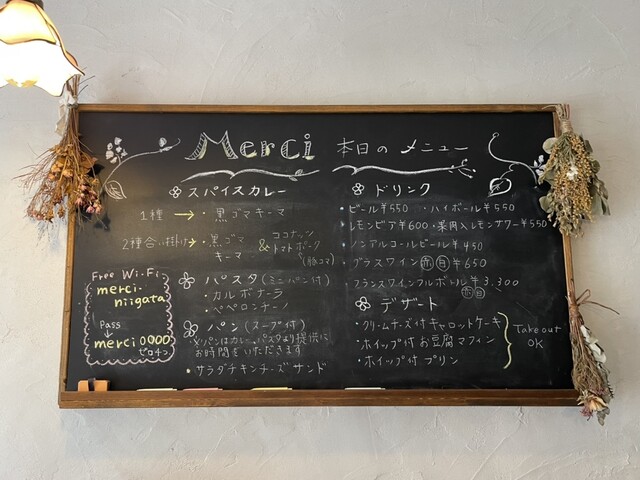 Merci 本日の メニュー
スパイスカレー
1種 → ・黒ゴマキーマ
2種合い掛け → ・黒ゴマキーマ & ココナッツトマトポーク(豚コマ)
パスタ(ミニパン付)
・カルボナーラ
・ペペロンチーノ
パン(スープ付)
※パンはカレー、パスタより提供に
お時間をいただきます
・サラダチキンチーズサンド
Free Wi-Fi
merci-
niigata
Pass
↓
merci0000
ゼロ4つ
ドリンク
・ビール¥550 ・ハイボール¥550
・レモンビア¥600 ・果肉入レモンサワー¥550
・ノンアルコールビール¥450
・グラスワイン 赤 白 ¥650
・フランスワインフルボトル¥3.300
赤 白
デザート
・クリームチーズ付キャロットケーキ
・ホイップ付お豆腐マフィン
・ホイップ付プリン
Take out
OK